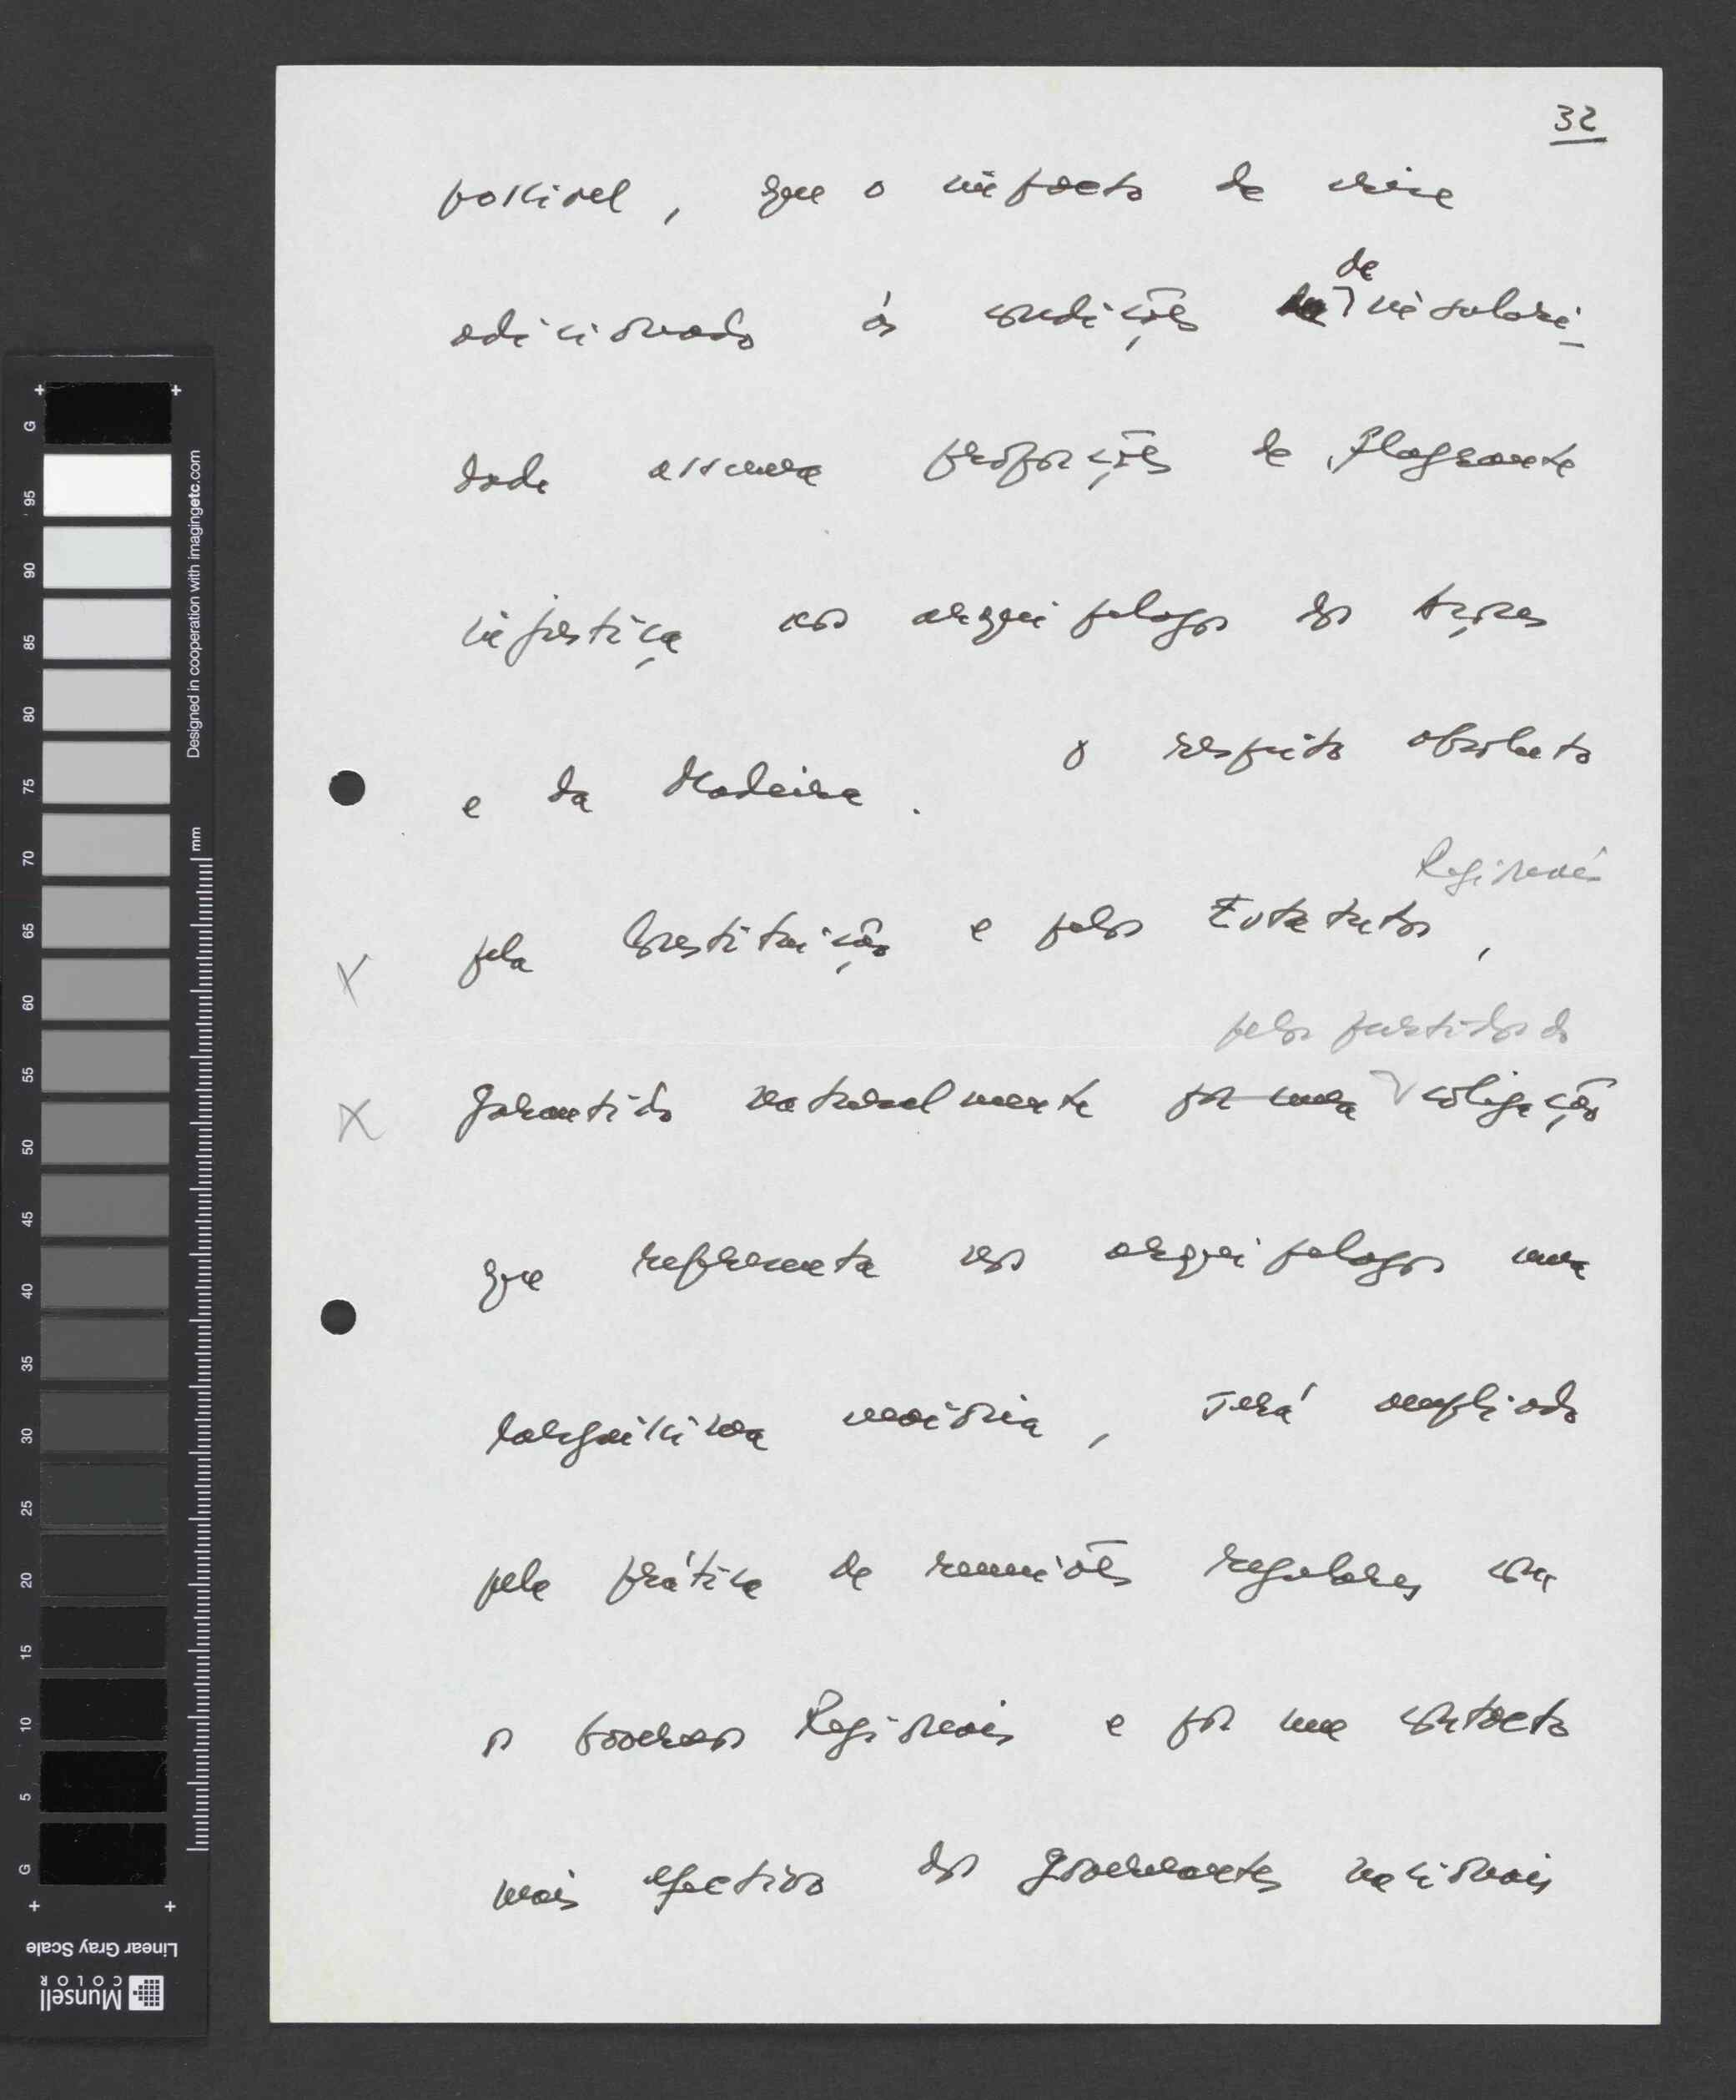 32
possivel, que o impacto da crise
adicionado às condições da de insulari-
dade assuma proporções de flagrante
injustiça nos arquipelagos dos Açores
e da Madeira. O respeito absoluto
Regionais
pela Constituição e pelos Estatutos,
pelos partidos da
garantido naturalmente por uma coligação
que representa nos arquipelagos uma
larguissima maioria, será ampliado
pela prática de reuniões regulares com
os Governos Regionais e por um contacto
mais efectivo dos governantes nacionais
G 95 90 85 80 75 70 65 60 55 50 45 40 35 30 25 20 15 10 5 G
Designed in cooperation with imagingetc.com
mm
Linear Gray Scale
Munsell
COLOR